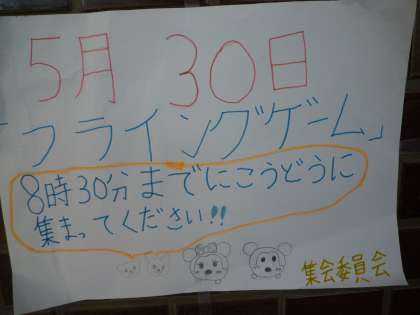 5月 30日
「フライングゲーム」
8時30分までにこうどうに
集まってください!!
集会委員会